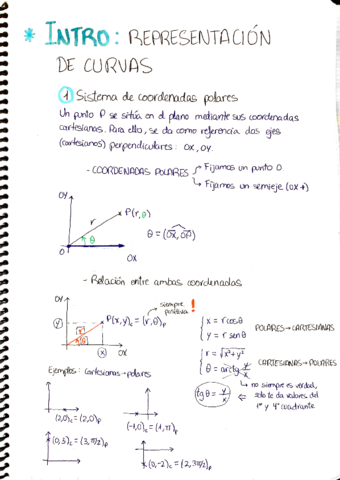 * INTRO: REPRESENTACIÓN
DE CURVAS
① Sistema de coordenadas polares
Un punto P se sitúa en el plano mediante sus coordenadas
cartesianas. Para ello, se da como referencia dos ejes
(cartesianos) perpendiculares: OX, OY.
- COORDENADAS POLARES → Fijamos un punto O
↳ Fijamos un semieje (OX+)
OY
P(r,θ)
r
θ
θ = (OX, OP)
O
OX
- Relación entre ambas coordenadas
siempre positiva !
OY
P(x,y)c = (r,θ)p
y
r
θ
x
OX
x = r cosθ
y = r senθ
POLARES → CARTESIANAS
r = √x²+y²
θ = arctg y/x
CARTESIANAS → POLARES
↳ no siempre es verdad,
solo te da valores del
1er y 4º cuadrante
tgθ = y/x ⇐
Ejemplos: cartesianas → polares
(2,0)c = (2,0)p
(-1,0)c = (1,π)p
(0,3)c = (3,π/2)p
(0,-2)c = (2,3π/2)p